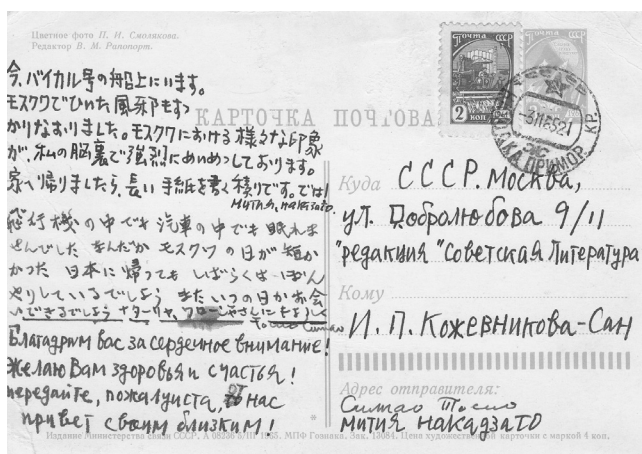 Цветное фото П. И. Смолякова.
Редактор В. М. Рапопорт.
ПОЧТА СССР
2 КОП
ПОЧТА СССР
КАРТОЧКА ПОЧТОВАЯ
今、バイカル号の船上にいます。
モスクワでひいた風邪もすっ
かりなおりました。モスクワにおける様々な印象
が、私の脳裏で強烈にめいめつしております。
家へ帰りましたら、長い手紙を書く積りです。では!
飛行機の中でも汽車の中でも眠れま
せんでした なんだか モスクワの日が短か
かった 日本に帰っても しばらくは ぼん
やりしているでしよう またいつの日かお会
いできるでしよう ナターリヤ, ワロージャさんにもよろしく
Благадрим вас за сердечное внимание!
Желаю Вам здоровья и счастья!
передайте, пожалуиста, от нас
привет своим близким!
Куда СССР. Москва,
ул. Добролюбова 9/11
"редакция "Советская Литература
Кому
И. П. Кожевникова-Сан
Адрес отправителя:
Симао Тосио
мития накадзато
Издание Министерства связи СССР. А 08236 5/III 1965. МПФ Гознака. Зак. 13084. Цена художественной карточки с маркой 4 коп.